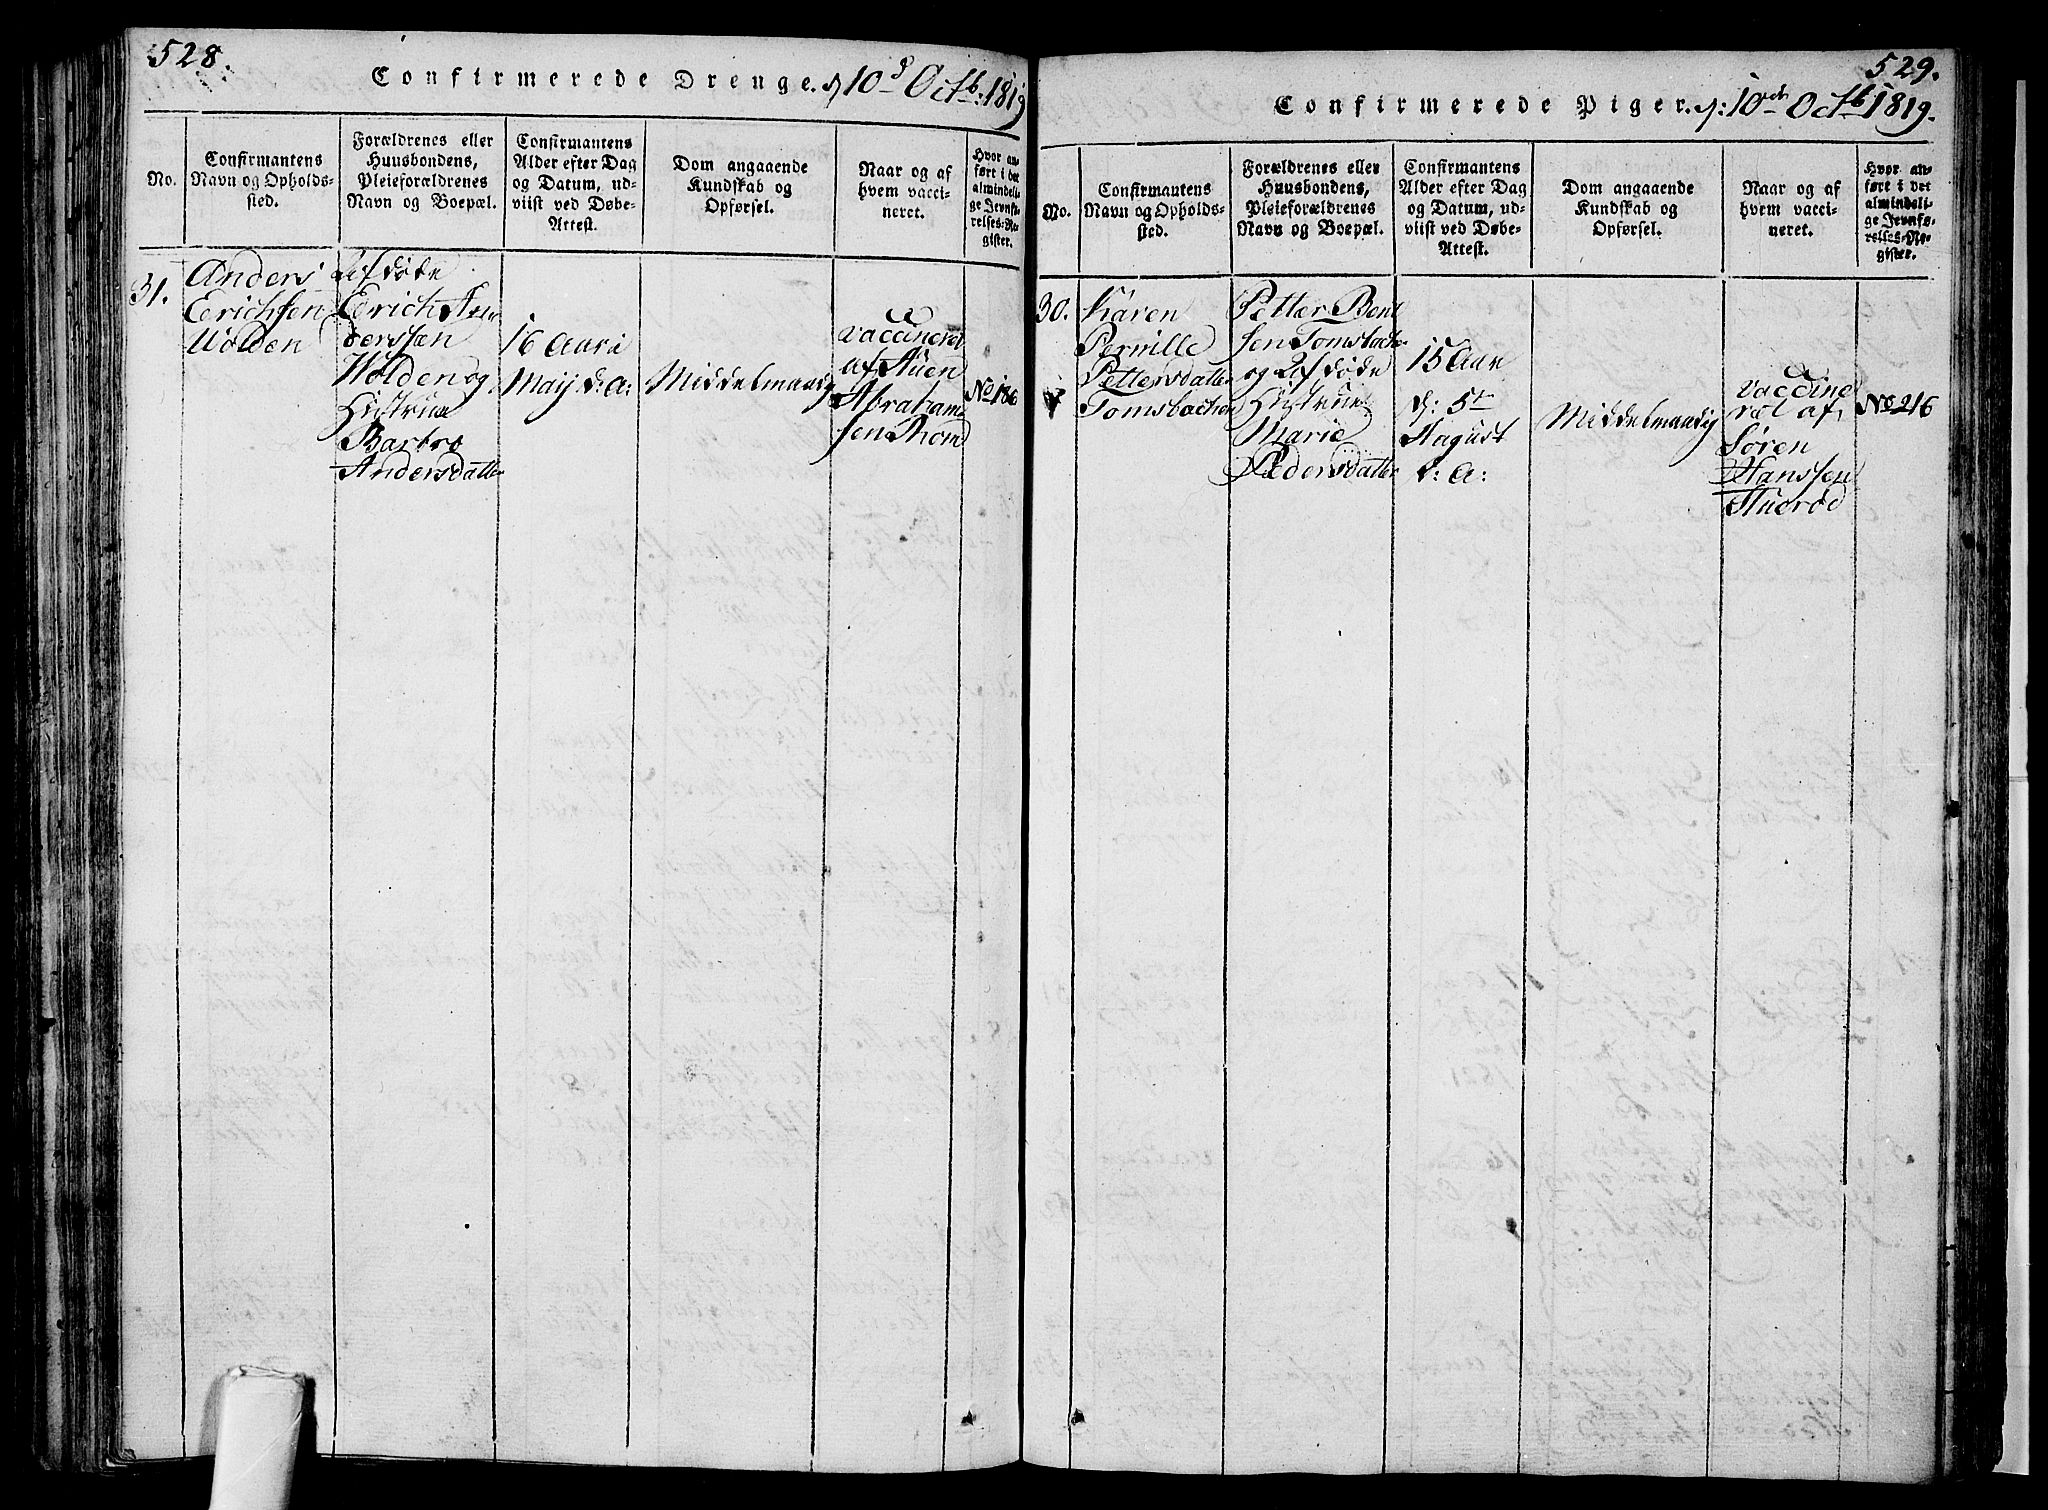 528.
Confirmerede Drenge. d 10d Octb: 1819
No.
Confirmantens
Navn og Opholds-
sted.
Forældrenes eller
Huusbondens,
Pleieforældrenes
Navn og Boepæl.
Confirmantens
Alder efter Dag
og Datum, ud-
viist ved Døbe-
Attest.
Dom angaaende
Kundskab og
Opførsel.
Naar og af
hvem vacci-
neret.
Hvor an-
ført i det
almindeli-
ge Jevnfø-
relses-Re-
gister.
31.
Anders
Erichsen
Wolden
Afdøde
Erich An
derssen
Wolden og
Hustrue
Barbro
Andersdatter
16 Aar i
Maij d: A:
Middelmaadig
vaccineret
af Auen
Abraham
sen Thom
No 186
529.
Confirmerede Piger. d: 10de Octb 1819.
No.
Confirmantens
Navn og Opholds-
sted.
Forældrenes eller
Huusbondens,
Pleieforældrenes
Navn og Boepæl.
Confirmantens
Alder efter Dag
og Datum, ud-
viist ved Døbe-
Attest.
Dom angaaende
Kundskab og
Opførsel.
Naar og af
hvem vacci-
neret.
Hvor an-
ført i det
almindeli-
ge Jevnfø-
relses-Re-
gister.
30.
Karen
Pernille
Pettersdatter
Tomsbachen
Petter Bent
sen Tomsbachen
og Afdøde
Hustrue
Marie
Pedersdatter
15 Aar
d: 5te
August
d: A:
Middelmaadig
vaccine
ret af
Søren
Hanssen
Stuerød
No 216